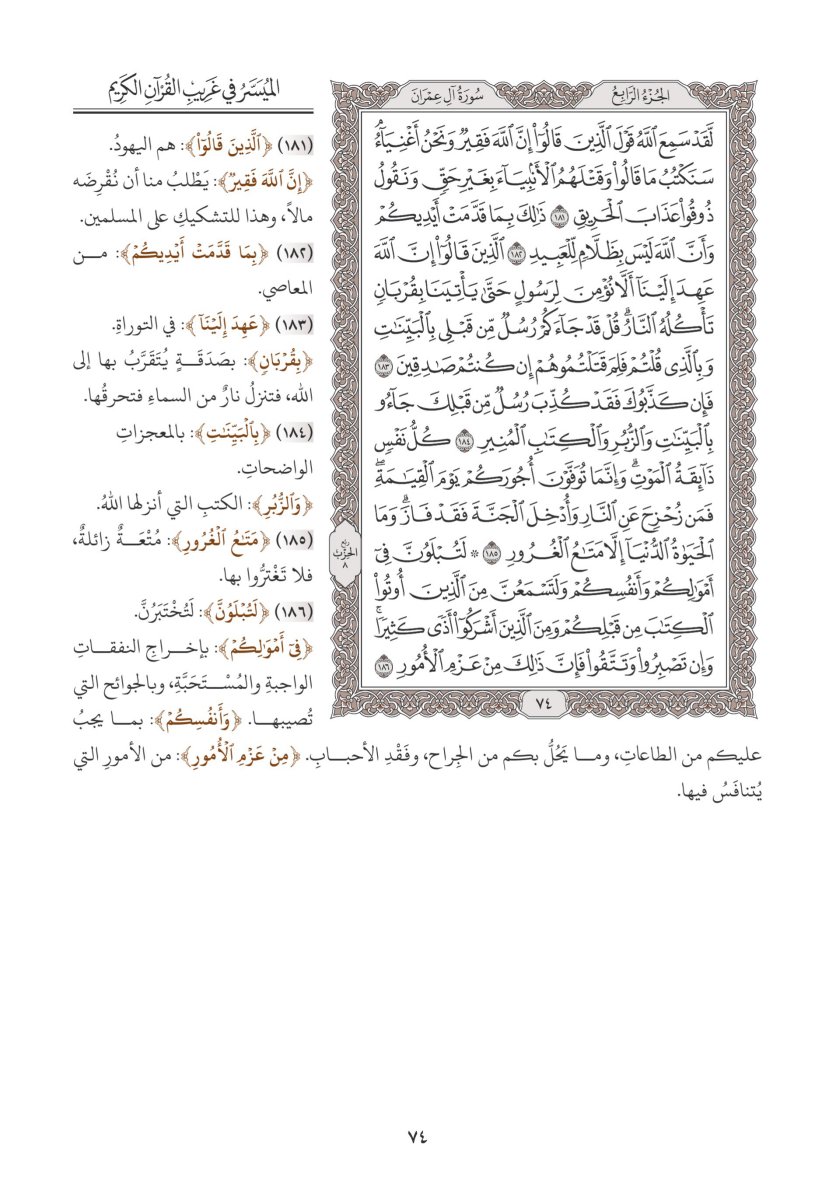 الميَسَّرُ في غَرِيبِ القُرْآنِ الكَرِيم
الجُزْءُ الرَّابِعُ
سُورَةُ آلِ عِمْرَانَ
لَّقَدْ سَمِعَ ٱللَّهُ قَوْلَ ٱلَّذِينَ قَالُوٓا۟ إِنَّ ٱللَّهَ فَقِيرٌ وَنَحْنُ أَغْنِيَآءُۘ
سَنَكْتُبُ مَا قَالُوا۟ وَقَتْلَهُمُ ٱلْأَنۢبِيَآءَ بِغَيْرِ حَقٍّ وَنَقُولُ
ذُوقُوا۟ عَذَابَ ٱلْحَرِيقِ ١٨١ ذَٰلِكَ بِمَا قَدَّمَتْ أَيْدِيكُمْ
وَأَنَّ ٱللَّهَ لَيْسَ بِظَلَّامٍ لِّلْعَبِيدِ ١٨٢ ٱلَّذِينَ قَالُوٓا۟ إِنَّ ٱللَّهَ
عَهِدَ إِلَيْنَآ أَلَّا نُؤْمِنَ لِرَسُولٍ حَتَّىٰ يَأْتِيَنَا بِقُرْبَانٍ
تَأْكُلُهُ ٱلنَّارُۗ قُلْ قَدْ جَآءَكُمْ رُسُلٌ مِّن قَبْلِى بِٱلْبَيِّنَٰتِ
وَبِٱلَّذِى قُلْتُمْ فَلِمَ قَتَلْتُمُوهُمْ إِن كُنتُمْ صَٰدِقِينَ ١٨٣
فَإِن كَذَّبُوكَ فَقَدْ كُذِّبَ رُسُلٌ مِّن قَبْلِكَ جَآءُو
بِٱلْبَيِّنَٰتِ وَٱلزُّبُرِ وَٱلْكِتَٰبِ ٱلْمُنِيرِ ١٨٤ كُلُّ نَفْسٍ
ذَآئِقَةُ ٱلْمَوْتِۗ وَإِنَّمَا تُوَفَّوْنَ أُجُورَكُمْ يَوْمَ ٱلْقِيَٰمَةِۖ
فَمَن زُحْزِحَ عَنِ ٱلنَّارِ وَأُدْخِلَ ٱلْجَنَّةَ فَقَدْ فَازَۗ وَمَا
ٱلْحَيَوٰةُ ٱلدُّنْيَآ إِلَّا مَتَٰعُ ٱلْغُرُورِ ١٨٥ ۞ لَتُبْلَوُنَّ فِىٓ
أَمْوَٰلِكُمْ وَأَنفُسِكُمْ وَلَتَسْمَعُنَّ مِنَ ٱلَّذِينَ أُوتُوا۟
ٱلْكِتَٰبَ مِن قَبْلِكُمْ وَمِنَ ٱلَّذِينَ أَشْرَكُوٓا۟ أَذًى كَثِيرًاۚ
وَإِن تَصْبِرُوا۟ وَتَتَّقُوا۟ فَإِنَّ ذَٰلِكَ مِنْ عَزْمِ ٱلْأُمُورِ ١٨٦
ربع
الحزب
٨
٧٤
(١٨١) ﴿ٱلَّذِينَ قَالُوٓا۟﴾: هم اليهودُ.
﴿إِنَّ ٱللَّهَ فَقِيرٌ﴾: يَطْلبُ منا أن نُقْرِضَه
مالاً، وهذا للتشكيكِ على المسلمين.
(١٨٢) ﴿بِمَا قَدَّمَتْ أَيْدِيكُمْ﴾: من
المعاصي.
(١٨٣) ﴿عَهِدَ إِلَيْنَآ﴾: في التوراةِ.
﴿بِقُرْبَانٍ﴾: بصَدَقَةٍ يُتَقَرَّبُ بها إلى
الله، فتنزلُ نارٌ من السماءِ فتحرقُها.
(١٨٤) ﴿بِٱلْبَيِّنَٰتِ﴾: بالمعجزاتِ
الواضحاتِ.
﴿وَٱلزُّبُرِ﴾: الكتبِ التي أنزلها اللهُ.
(١٨٥) ﴿مَتَٰعُ ٱلْغُرُورِ﴾: مُتْعَةٌ زائلةٌ،
فلا تَغْترُّوا بها.
(١٨٦) ﴿لَتُبْلَوُنَّ﴾: لَتُخْتَبَرُنَّ.
﴿فِىٓ أَمْوَٰلِكُمْ﴾: بإخراجِ النفقاتِ
الواجبةِ والمُسْتَحَبَّةِ، وبالجوائح التي
تُصيبها. ﴿وَأَنفُسِكُمْ﴾: بما يجبُ
عليكم من الطاعاتِ، وما يَحُلُّ بكم من الجِراح، وفَقْدِ الأحبابِ. ﴿مِنْ عَزْمِ ٱلْأُمُورِ﴾: من الأمورِ التي
يُتنافَسُ فيها.
٧٤